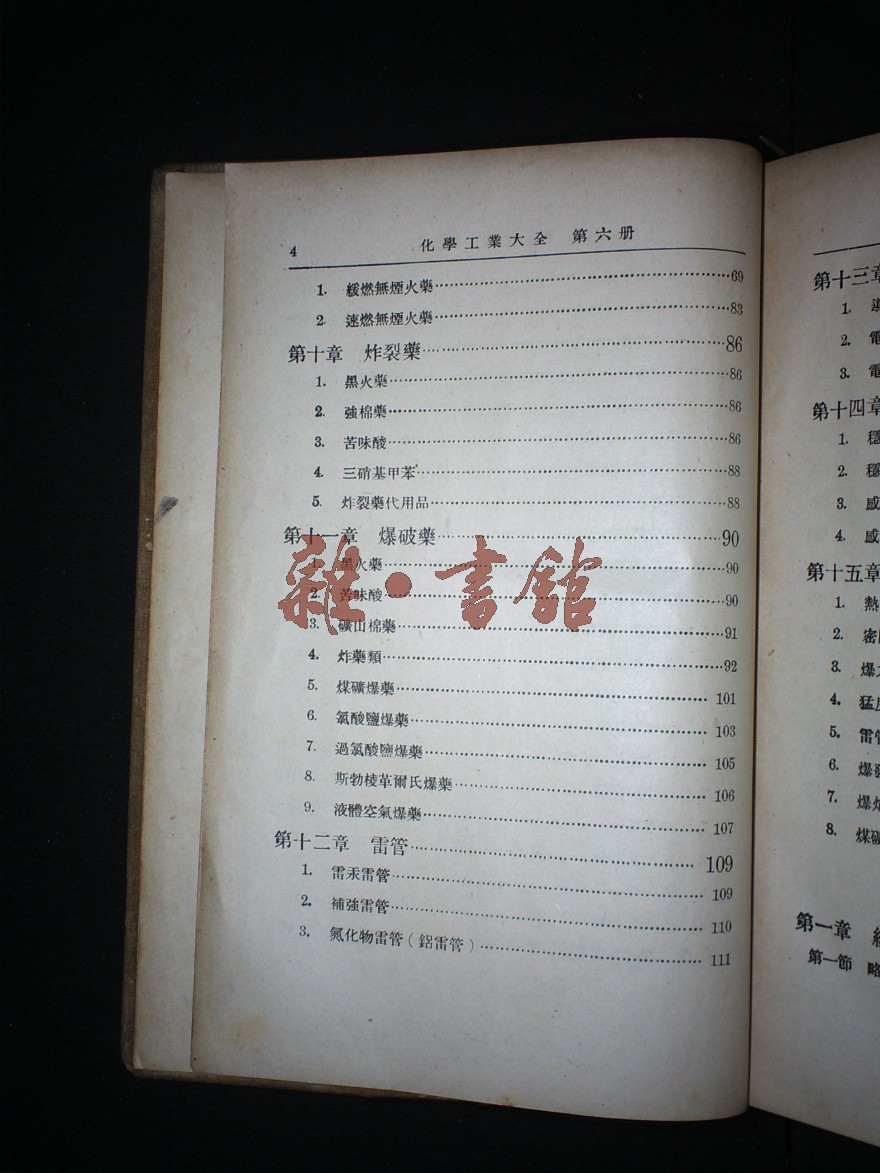 4 化學工業大全 第六册
1. 緩燃無煙火藥 69
2. 速燃無煙火藥 83
第十章 炸裂藥 86
1. 黑火藥 86
2. 強棉藥 86
3. 苦味酸 86
4. 三硝基甲苯 88
5. 炸裂藥代用品 88
第十一章 爆破藥 90
1. 黑火藥 90
2. 苦味酸 90
3. 礦山棉藥 91
4. 炸藥類 92
5. 煤礦爆藥 101
6. 氯酸鹽爆藥 103
7. 過氯酸鹽爆藥 105
8. 斯勃棱革爾氏爆藥 106
9. 液體空氣爆藥 107
第十二章 雷管 109
1. 雷汞雷管 109
2. 補強雷管 110
3. 氮化物雷管(鋁雷管) 111
雜·書館
第十三章
1.
2. 電
3. 電
第十四章
1. 穩
2. 穩
3. 感
4. 感
第十五章
1. 熱
2. 密
3. 爆
4. 猛
5. 雷管
6. 爆發
7. 爆
8. 煤
第一章
第一節 略